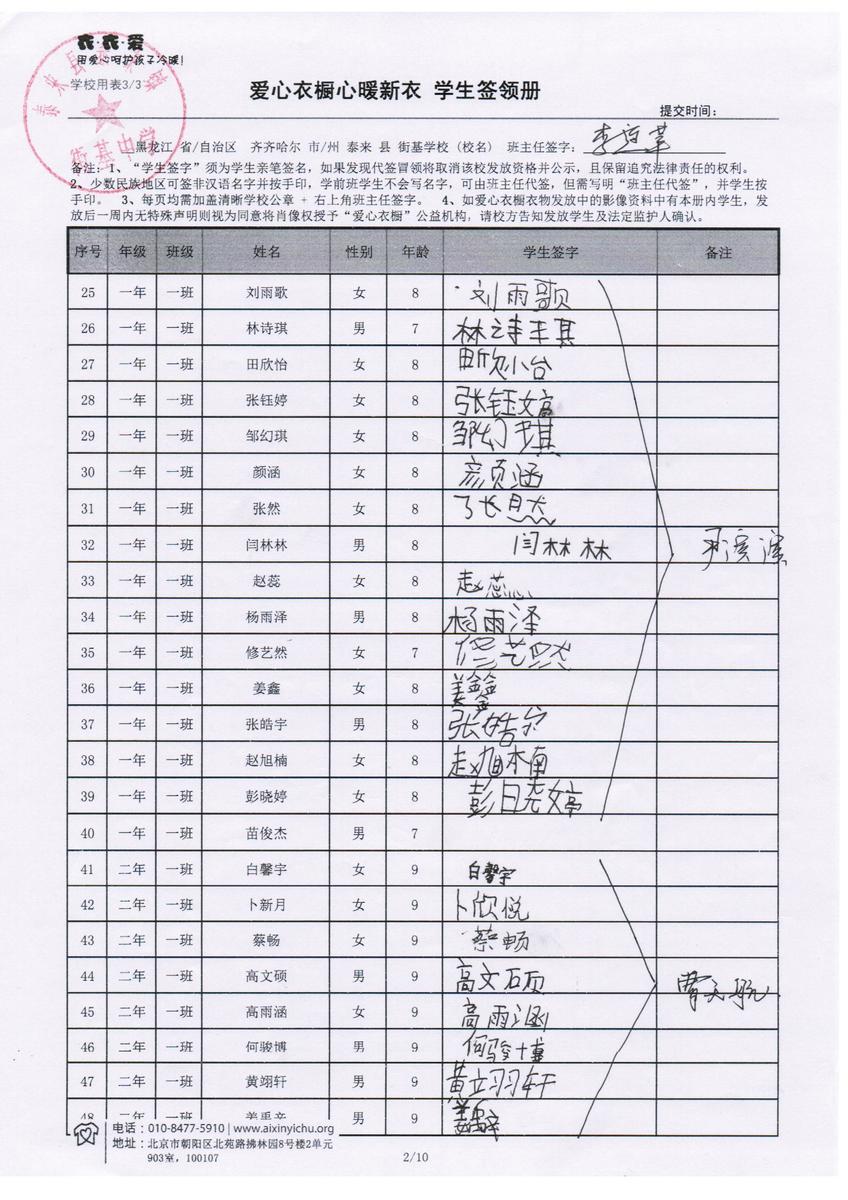 衣·衣·爱
用爱心呵护孩子冷暖!
学校用表3/3
街基中学
爱心衣橱心暖新衣 学生签领册
提交时间:
黑龙江 省/自治区 齐齐哈尔 市/州 泰来 县 街基学校(校名) 班主任签字:
备注: 1、“学生签字”须为学生亲笔签名,如果发现代签冒领将取消该校发放资格并公示,且保留追究法律责任的权利。
2、少数民族地区可签非汉语名字并按手印,学前班学生不会写名字,可由班主任代签,但需写明“班主任代签”,并学生按
手印。 3、每页均需加盖清晰学校公章 + 右上角班主任签字。 4、如爱心衣橱衣物发放中的影像资料中有本册内学生,发
放后一周内无特殊声明则视为同意将肖像权授予“爱心衣橱”公益机构,请校方告知发放学生及法定监护人确认。
序号 年级 班级 姓名 性别 年龄 学生签字 备注
25 一年 一班 刘雨歌 女 8 刘雨歌
26 一年 一班 林诗琪 男 7 林诗琪
27 一年 一班 田欣怡 女 8 田欣怡
28 一年 一班 张钰婷 女 8 张钰婷
29 一年 一班 邹幻琪 女 8 邹幻琪
30 一年 一班 颜涵 女 8 颜涵
31 一年 一班 张然 女 8 张然
32 一年 一班 闫林林 男 8 闫林林
33 一年 一班 赵蕊 女 8 赵蕊
34 一年 一班 杨雨泽 男 8 杨雨泽
35 一年 一班 修艺然 女 7 修艺然
36 一年 一班 姜鑫 女 8 姜鑫
37 一年 一班 张皓宇 男 8 张皓宇
38 一年 一班 赵旭楠 女 8 赵旭楠
39 一年 一班 彭晓婷 女 8 彭晓婷
40 一年 一班 苗俊杰 男 7
41 二年 一班 白馨宇 女 9 白馨宇
42 二年 一班 卜新月 女 9 卜欣悦
43 二年 一班 蔡畅 女 9 蔡畅
44 二年 一班 高文硕 男 9 高文硕
45 二年 一班 高雨涵 女 9 高雨涵
46 二年 一班 何骏博 男 9 何骏博
47 二年 一班 黄翊轩 男 9 黄翊轩
48 二年 一班 姜禹辛 男 9 姜禹辛
电话:010-8477-5910 | www.aixinyichu.org
地址:北京市朝阳区北苑路拂林园8号楼2单元
903室,100107
2/10